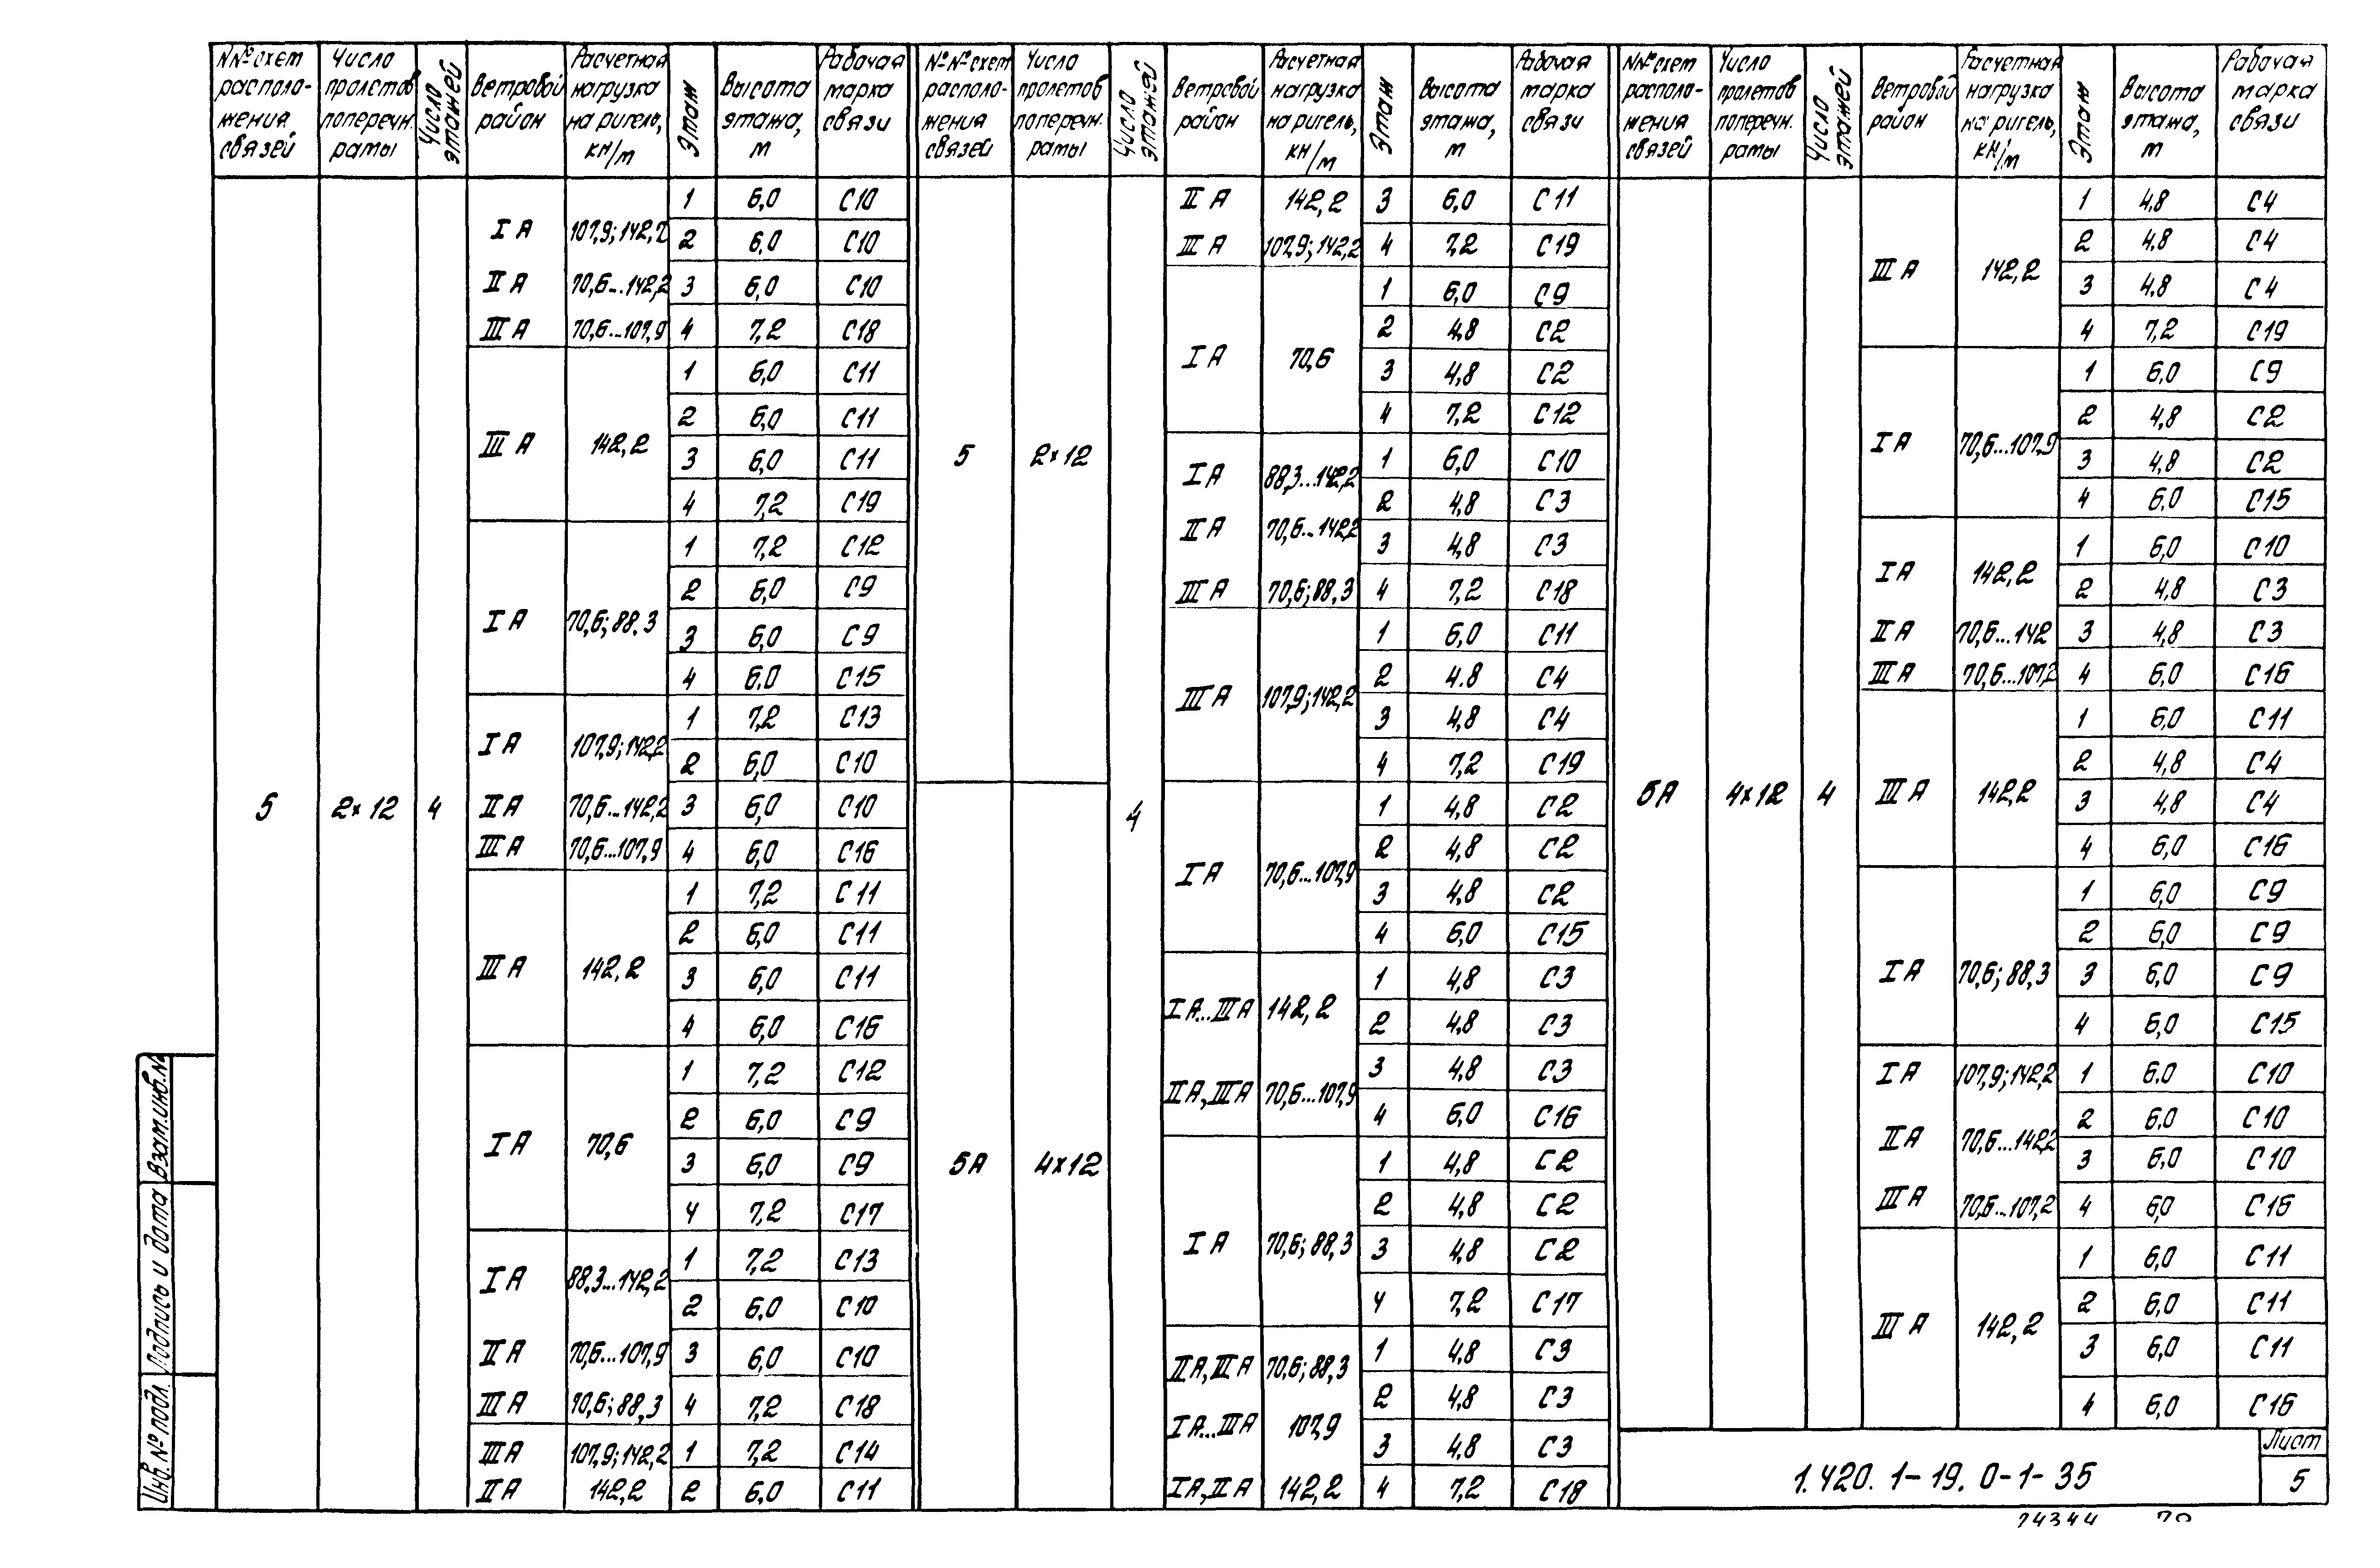 N№ схем расположения связей | Число пролетов поперечн. рамы | Число этажей | Ветровой район | Расчетная нагрузка на ригель, кН/м | Этаж | Высота этажа, м | Рабочая марка связи
5 | 2×12 | 4
I А 107,9; 142,2
II А 70,6...142,2
III А 70,6...107,9
1 6,0 С10
2 6,0 С10
3 6,0 С10
4 7,2 С18
III А 142,2
1 6,0 С11
2 6,0 С11
3 6,0 С11
4 7,2 С19
I А 70,6; 88,3
1 7,2 С12
2 6,0 С9
3 6,0 С9
4 6,0 С15
I А 107,9; 142,2
II А 70,6...142,2
III А 70,6...107,9
1 7,2 С13
2 6,0 С10
3 6,0 С10
4 6,0 С16
III А 142,2
1 7,2 С11
2 6,0 С11
3 6,0 С11
4 6,0 С16
I А 70,6
1 7,2 С12
2 6,0 С9
3 6,0 С9
4 7,2 С17
I А 88,3...142,2
II А 70,6...107,9
III А 70,6; 88,3
1 7,2 С13
2 6,0 С10
3 6,0 С10
4 7,2 С18
III А 107,9; 142,2
II А 142,2
1 7,2 С14
2 6,0 С11
№№ схем расположения связей | Число пролетов поперечн. рамы | Число этажей | Ветровой район | Расчетная нагрузка на ригель, кН/м | Этаж | Высота этажа, м | Рабочая марка связи
5 | 2×12 | 4
II А 142,2
III А 107,9; 142,2
3 6,0 С11
4 7,2 С19
I А 70,6
1 6,0 С9
2 4,8 С2
3 4,8 С2
4 7,2 С12
I А 88,3...142,2
II А 70,6...142,2
III А 70,6; 88,3
1 6,0 С10
2 4,8 С3
3 4,8 С3
4 7,2 С18
III А 107,9; 142,2
1 6,0 С11
2 4.8 С4
3 4,8 С4
4 7,2 С19
5А | 4×12
I А 70,6...107,9
1 4,8 С2
2 4,8 С2
3 4,8 С2
4 6,0 С15
I А...III А 142,2
II А, III А 70,6...107,9
1 4,8 С3
2 4,8 С3
3 4,8 С3
4 6,0 С16
I А 70,6; 88,3
1 4,8 С2
2 4,8 С2
3 4,8 С2
4 7,2 С17
II А, III А 70,6; 88,3
I А...III А 107,9
I А, II А 142,2
1 4,8 С3
2 4,8 С3
3 4,8 С3
4 7,2 С18
N№ схем расположения связей | Число пролетов поперечн. рамы | Число этажей | Ветровой район | Расчетная нагрузка на ригель, кН/м | Этаж | Высота этажа, м | Рабочая марка связи
5А | 4×12 | 4
III А 142,2
1 4,8 С4
2 4,8 С4
3 4,8 С4
4 7,2 С19
I А 70,6...107,9
1 6,0 С9
2 4,8 С2
3 4,8 С2
4 6,0 С15
I А 142,2
II А 70,6...142
III А 70,6...107,2
1 6,0 С10
2 4,8 С3
3 4,8 С3
4 6,0 С16
III А 142,2
1 6,0 С11
2 4,8 С4
3 4,8 С4
4 6,0 С16
I А 70,6; 88,3
1 6,0 С9
2 6,0 С9
3 6,0 С9
4 6,0 С15
I А 107,9; 142,2
II А 70,6...142,2
III А 70,6...107,2
1 6.0 С10
2 6,0 С10
3 6,0 С10
4 6,0 С16
III А 142,2
1 6,0 С11
2 6,0 С11
3 6,0 С11
4 6,0 С16
1.420.1-19.0-1-35
Лист
5
Инв. № подл.
Подпись и дата
Взам.инв.№